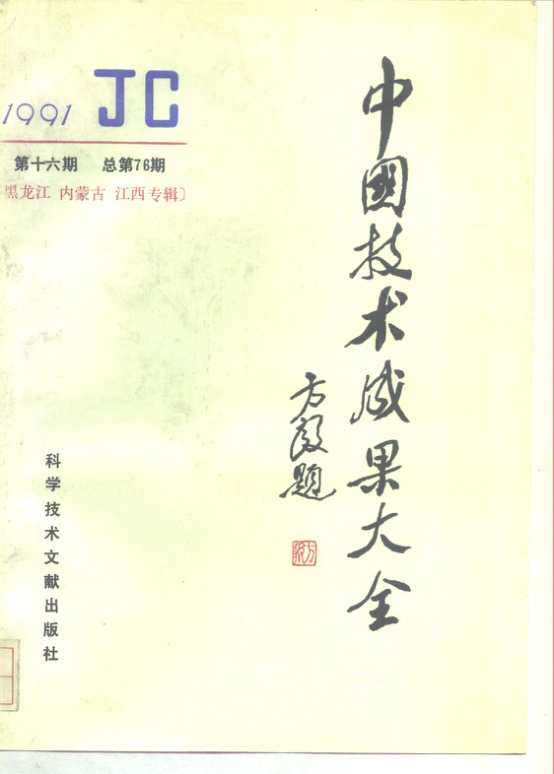 1991 JC
第十六期 总第76期
黑龙江 内蒙古 江西专辑〕
中國技术成果大全
方毅题
科学技术文献出版社